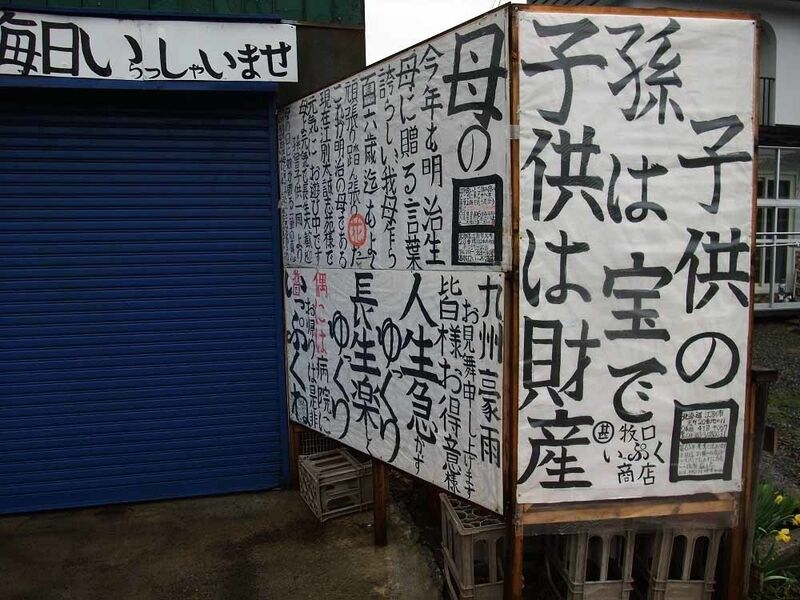 毎日いらっしゃいませ
母の日
今年も明治生
母に贈る言葉
誇らしい我母よ
百六歳迄もよ
現在江別大誠苑様で
元気にお遊び中です
九州豪雨
お見舞申し上げます
皆様お得意様
人生急がず
ゆっくり
長生楽しく
ゆっくり
偶には病院に
お帰りは是非
いっぷくね
子供の日
孫は宝で
子供は財産
牧口
いっぷく
商店